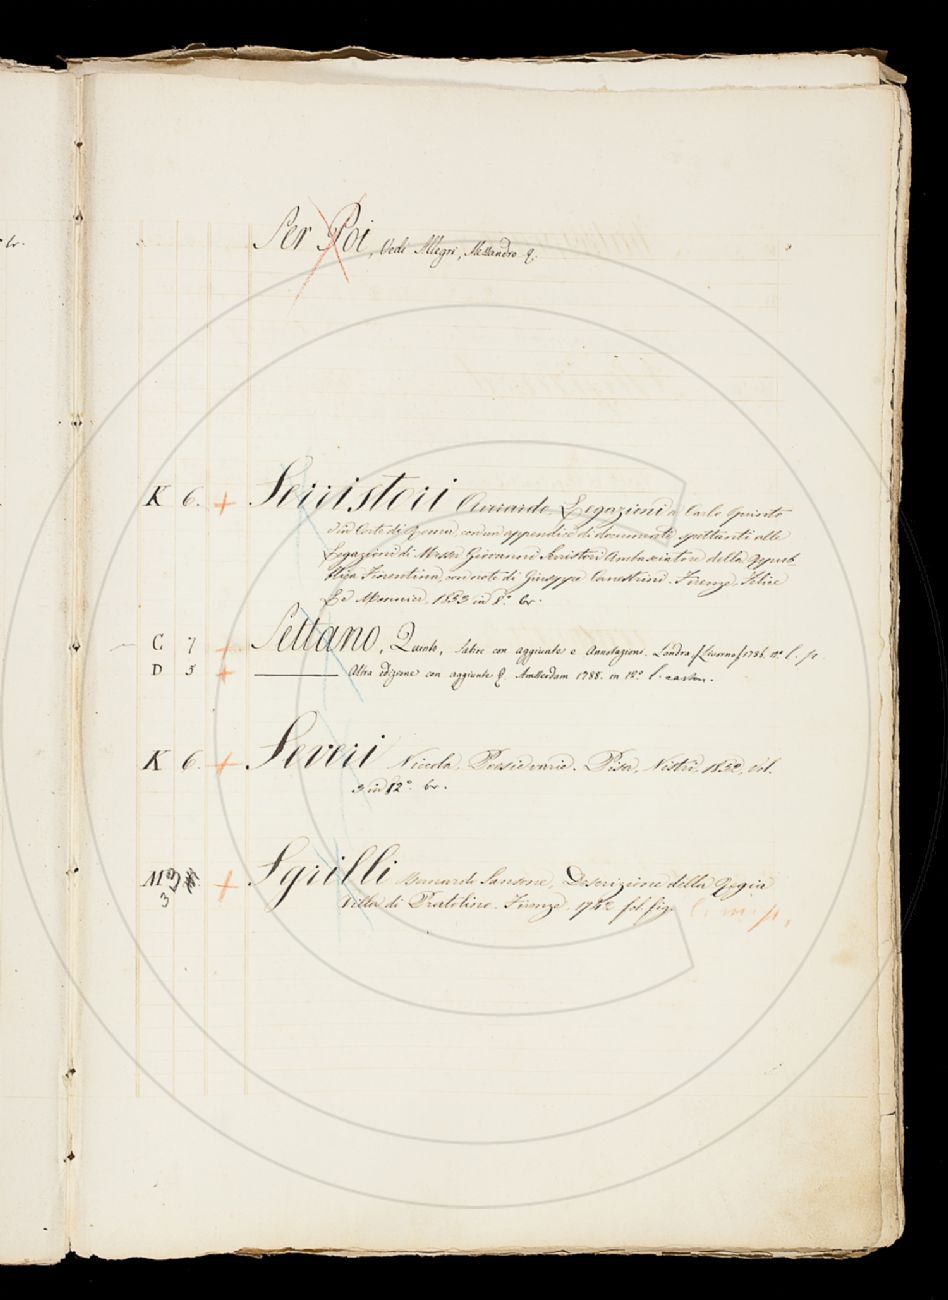 br.
Ser Poi, Vedi Allegri, Alessandro &.
K 6. + Serristori Averardo. Legazioni a Carlo Quinto
ed in Corte di Roma, con un appendice di documenti spettanti alle
Legazioni di Messer Giovanni Serristori Ambasciatore della Repub-
blica Fiorentina, con note di Giuseppe Canestrini. Firenze, Felice
Le Monnier, 1853 in 8.° br.
C. 7 + Settano, Quinto, Satire con aggiunte e Annotazioni. Londra (Livorno) 1786. 12.° l. p.
D 5 + ——— Altra edizione con aggiunte &. Amsterdam 1788. in 12.° l. carton.
K 6. + Severi Nicola. Poesie varie. Pisa, Nistri, 1832, vol.
3 in 12.° br.
M 3 + Sgrilli Bernardo Sansone, Descrizione della Regia
3 Villa di Pratolino. Firenze, 1742 fol. fig.